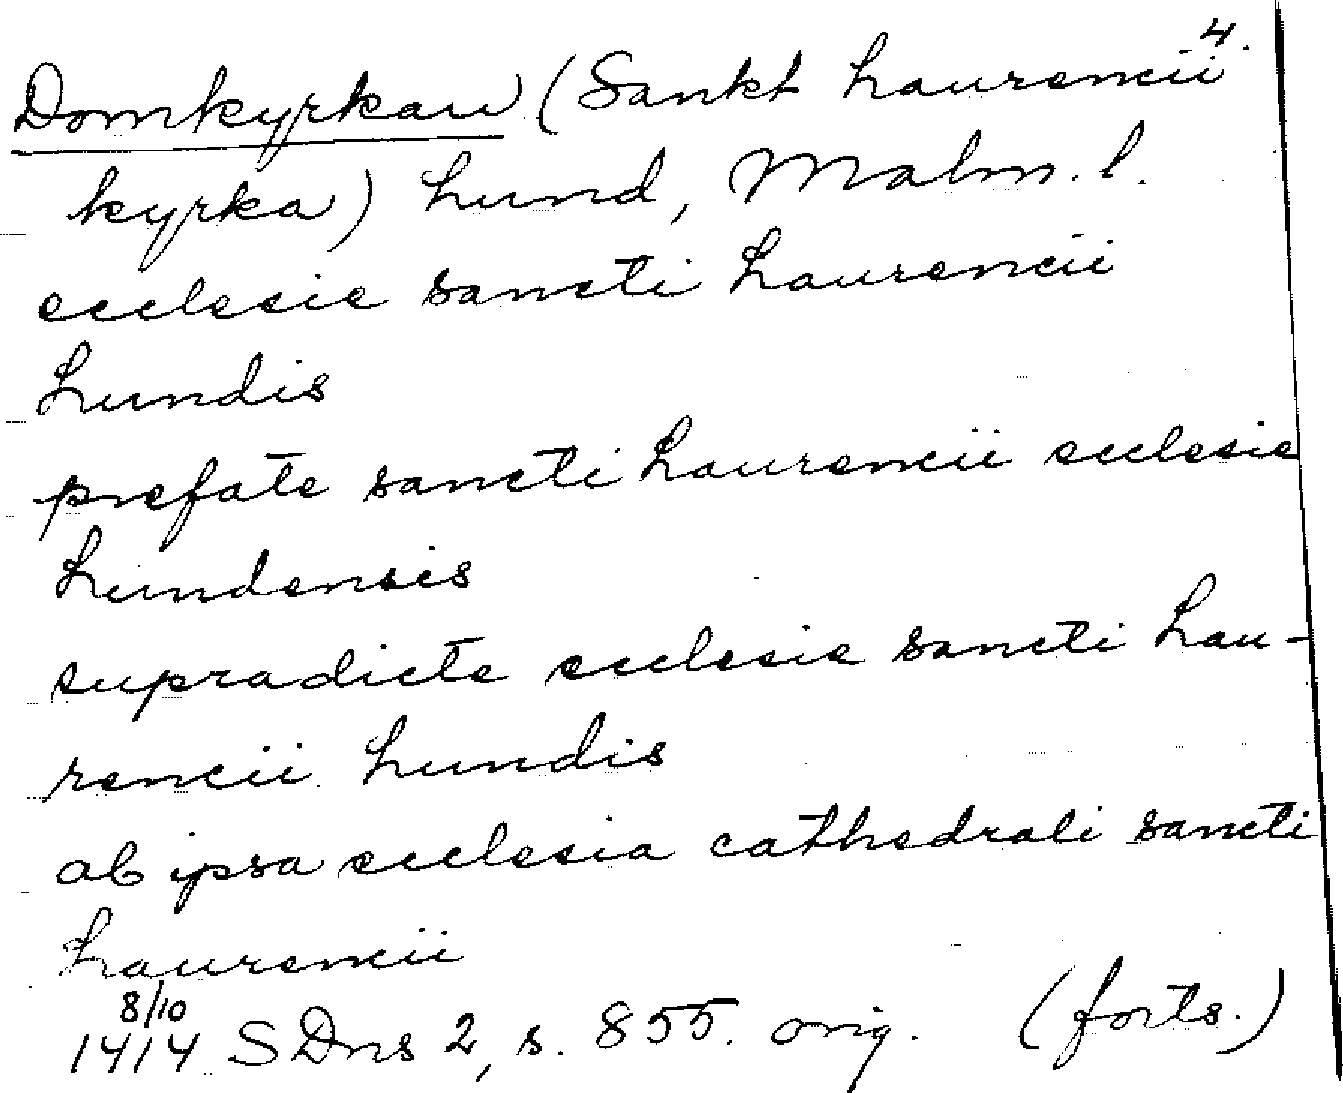 4.
Domkyrkan (Sankt Laurencii
kyrka) Lund, Malm. l.
ecclesie sancti Laurencii
Lundis
prefate sancti Laurencii ecclesie
Lundensis
supradicte ecclesie sancti Lau-
rencii Lundis
ab ipsa ecclesia cathedrali sancti
Laurencii
8/10
1414 SDns 2, s. 855. orig. (forts.)